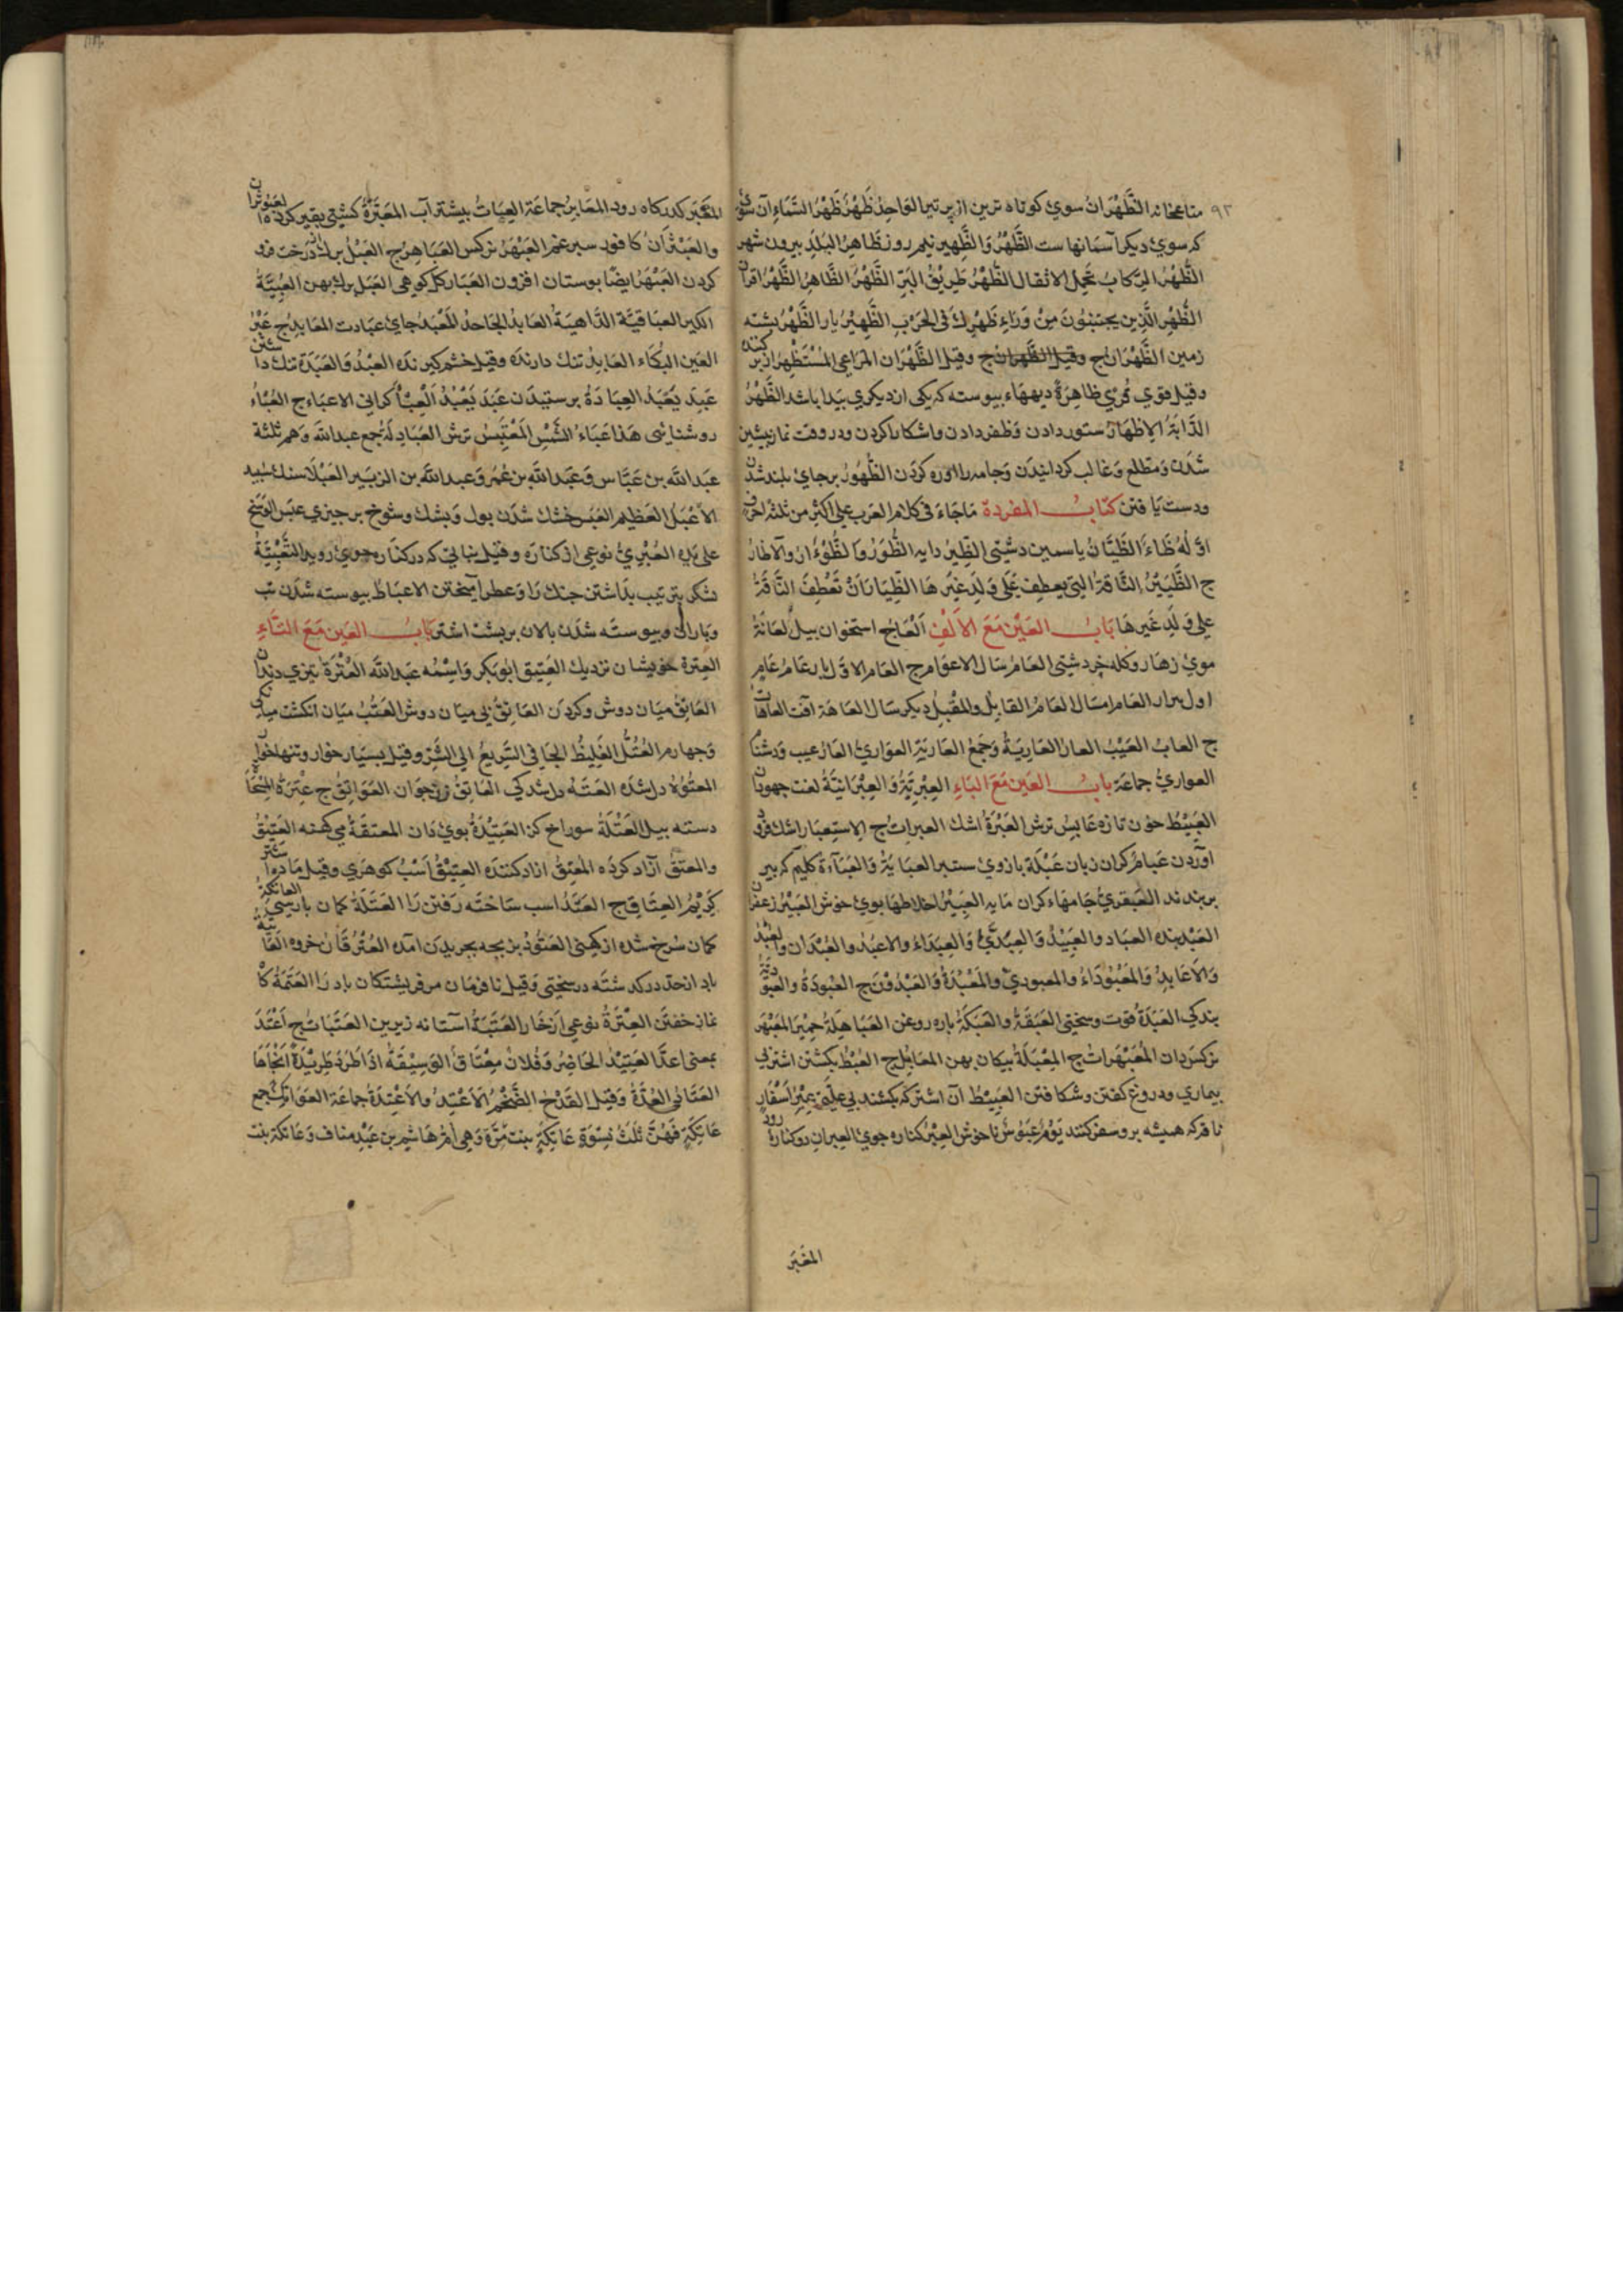 متاع خانه الظَّهْرَانُ سوي كوتاه ترين از پر تير الواحِدُ ظَهْرٌ ظَهْرُ السَّمَاءِ آن سوي
كه سوي ديكر آسمانهاست الظُّهْرُ وَالظَّهِيرَ نيم روز ظَاهِرُ البَلَدِ بيرون شهر
الظَّهْرُ الرِّكَابُ تحمل الاثقال الظَّهْرُ طَرِيْقُ البَرِّ الظَّهْرُ الظَّاهِرُ الظَّهْرُ
الظُّهْرِ الَّذِين مِنْ وَرَاءِ ظَهْرِكَ فى الحَرْبِ الظَّهِيْرُ يار الظَّهْرُ پشته
زمين الظُّهْرَانُ ج وقيل الظَّهْرَان ج وقيل الظَّهْرَان
وقيل قوي ظاهِرَةٌ ديهاء پيوسته كه يكى از ديكري پيدا باشد الظَّهْرُ
الدَّابَّةُ الاِظهَارُ ستور دادن وَظفر دادن واشكارا كردن ودر وقت نماز پيشين
شدَن وَمطلع وَغالب كردانيدَن وَجامه را كردَن الظُّهُورُ بر جاي بلند شدن
ودست يافتن كتابُ المفردة مَاجَاءَ فى كلام العرب على اكثر من ثلثة احرف
اوّلُهُ ظَاءٌ الظَّيَّانُ ياسمين دشتى الظِّيرُ دايه الظُّؤُرُ وَالظُّؤَارُ وَالاظارُ
ج الظَّيْرُ النَّاقَةُ الَّتى يعطف عَلَى وَلَدِ غَيرِهَا اَنْ تَعْطِفَ النَّاقَةُ
على وَلَدِ غَيرِهَا بَابُ العَيْنِ مَعَ الاَلْفِ اَلعَاجُ استخوان پيل العَانَةُ
موي زهار وكله خر دشتى العَامُ سَال الاعوام ج العَام الاوّل پار عَامُ عَامِ
اول پيرار العَام امسَال العَامُ القابِلُ والمُقْبِلُ ديكر سَال العَاهَة آفت العاهات
ج العابُ العَيْبُ العار العَارِيَةُ وَجَمعُ العَاريَةِ العوَاريُّ العَارُ عيب
العواريُّ جماعَة بابُ العَين مَعَ البَاءِ العِبْرِيَّةُ وَالعِبْرَانِيَّةُ لغت جهودان
العَبِيْطُ خون تازه عَابِسٌ ترش العَبْرَةُ اشك العبرات ج الاِستِعبَار اشك فرو
اورَدن عَبامٌ كران زبان عَبْلَة بازوي ستبر العبَايَةُ وَالعَبَآءَةُ كليم كه بر
بربندند العَبقريُّ جَامهَاء كران مَايه العِبِيْرُ اخلاطهَا بوي خوش العَبيْرُ زعفران
العَبْد بنده العبَاد والعَبِيْدُ وَالعِبِدّى وَالعِبِدَاءُ والاعبُدُ والعُبْدَان والعُبُدُ
وَالاَعَابِدُ وَالمَعْبُوْدَاءُ والمعبوديُّ والمَعْبُدَةُ وَالعَبْدُوْنَ ج العُبُودَةُ والعبودية
بندكى العَبَدَةُ قوت وسختى العَبَقَةُ والعَبَكَةُ پاره روغن العَبَاهِلَةُ المُعَبْهَر
نركسدان المُعَبْهَرَاتُ ج المِعْبَلَةُ پيكان پهن المعَابِل ج العَبْطُ بكشتن اشتر بى
بيمارى ودروغ كفتن وشكافتن العَبِيْطُ آن اشتر كه بكشند بى علتى عُبْرُ اَسْفَارٍ
ناقه كه هميشه برو سفر كنند يَوْمٌ عَبُوْسٌ ناخوش العِبْرُ كناره جوي العِبران دو كنارهٔ رود
المَعْبَر
المَعْبَر كدركاه رود المعَابِرُ جماعَة
والعَبْثُرَانُ كافور سپرغم العَبْهَرُ نركس العَبَاهِرُ ج العَبَلُ برك درخت فرو
كردن العَبْهَرُ ايضًا بوستان افروز العَبَار كل كوهى العَبَل برك پهن
الكبر العبَاقيَة الدَّاهيَةُ العَابِدُ الجَاحِدُ المَعْبَدُ جاي عبَادت المعَابد ج عَبْرُ
العَين البُكَاء العَابِدُ ننك دارنده وقيل خشم كيرنده العَبْدُ وَالعَبَدَة ننك داشتن
عَبِدَ يَعْبَدُ العِبَادَةُ پرستيدَن عَبَدَ يَعْبُدُ العِبْأُ كرانى الاعبَاء ج العَبْاءُ
روشنائى هَذا عَبَاءُ الشَّمْسِ المُعَبِّسُ ترش العَبَادِلَةُ جمع عبد الله وَهم ثلثة
عَبد الله بن عَبَّاس وَعَبد الله بن عُمَر وَعبد الله بن الزبَير العَبْلَا سنك سپيد
الاَعْبَلُ العظيم العَبَس خشك شدَن بول وَپشك وَشوخ بر چيزي عَبَسَ الوَسَخُ
على يَدِهِ العُبْرِيُّ نوعى از كنار وَقيل بنائى كه در كنار جوي رويد التَّعْبِيَةُ
لشكر بترتيب بداشتن جنك رَا وَعطر آميختن الاعبَاطُ پيوسته شدَن تب
وَباران وپيوسته شدَن پالان بر پشت اشتر بَابُ العَين مَعَ التَّاءِ
العِترة خويشان نزديك العَتيق ابُوبَكر وَاسمُه عَبد الله العُتْرَةُ تيزي دندان
العَاتِقُ ميَان دوش وكردَن العَاتِقُ بى ميَان دوش العَتَبُ ميَان انكشت ميانكى
وَچهارم العُتُلُّ الغَلِيظُ الجَافى السَّرِيعُ الى الشَّرِّ وقيل بسيَار خوار وتنها خوار
المعتُوْهُ دل شده العَتَه دل شدكى العَاتِقُ زن جوَان العَوَاتِقُ ج عِتْرَةُ المِسْحَاةِ
دسته بيل العَتَلَةُ سوراخ كن العَتِيْدَةُ بوي دَان المعتقَةُ مى كهنه العَتِيْقُ
والمعتَقُ آزاد كرده المُعتِقُ ازاد كننده العِتِيْقُ اَسْبُ كوهري وقيل مَاده اشتر
كَرِيْمُ العِتَاق ج العَتَدُ اسب سَاخته رَفتن رَا العَتَلَةُ كمَان پارسى العاتكة
كمَان سُرخ شده از كهنى العَتُوْدُ بزبچه بچريدَن امده العُتْرُفَانُ خروه
باد از حد در كدشته در سختى وَقيل نافرمَان مر فريشتكان باد رَا العَتَمَةُ كاه
نماز خفتن العِتْرَةُ نوعى اَز خَار العَتَبَةُ آستانه زيرين العَتَبَات ج اَعْتَدَ
بمعنى اعدّ العَتِيْدُ الحَاضِرُ وَفُلَانٌ مِعْتَاقُ الوَسِيْقَةِ اذَا طَرَدَ طَرِيْدَةً اَنْجَاهَا
العَتَادُ العُدَّةُ وَقِيْل القَدَحُ الضَّخْمُ الاَعْتِدُ وَالاَعْتِدَةُ جماعَة العَوَاتِكُ جمع
عَاتِكَةٍ فَهُنَّ ثلثُ نِسْوَةٍ عَاتِكَةُ بنت مُرَّة وَهى اُمُّ هَاشِم بن عَبْدِ مناف وَعَاتكَة بنت